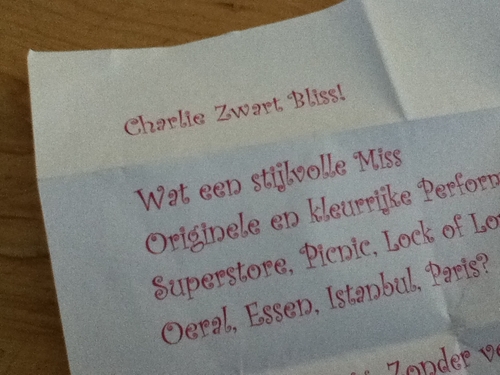 Charlie Zwart Bliss!
Wat een stijlvolle Miss
Originele en kleurrijke
Superstore, Picnic, Lock of
Oeral, Essen, Istanbul, Paris?
Zonder